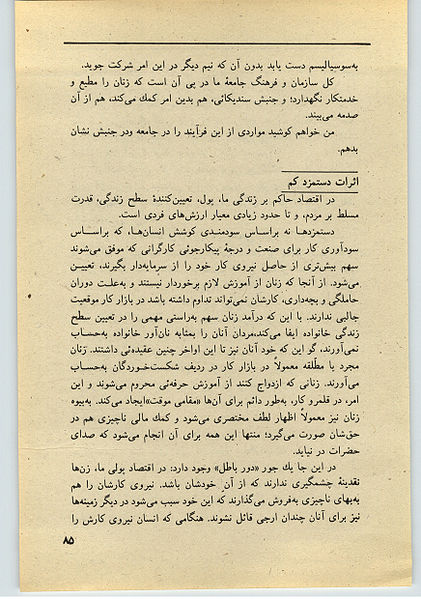 به‌سوسیالیسم دست یابد بدون آن که نیم دیگر در این امر شرکت جوید.
کل سازمان و فرهنگ جامعهٔ ما در پی آن است که زنان را مطیع و
خدمتکار نگهدارد؛ و جنبش سندیکائی، هم بدین امر کمك می‌کند، هم از آن
صدمه می‌بیند.
من خواهم کوشید مواردی از این فرآیند را در جامعه ودر جنبش نشان
بدهم.
اثرات دستمزد کم
در اقتصاد حاکم بر زندگی ما، پول، تعیین‌کنندهٔ سطح زندگی، قدرت
مسلط بر مردم، و تا حدود زیادی معیار ارزش‌های فردی است.
دستمزدها نه براساس سودمندی کوشش انسان‌ها، که براساس
سودآوری کار برای صنعت و درجهٔ پیکارجوئی کارگرانی که موفق می‌شوند
سهم بیش‌تری از حاصل نیروی کار خود را از سرمایه‌دار بگیرند، تعیین
می‌شود. از آنجا که زنان از آموزش لازم برخوردار نیستند و به‌علت دوران
حاملگی و بچه‌داری، کارشان نمی‌تواند تداوم داشته باشد در بازار کار موقعیت
جالبی ندارند. با این که درآمد زنان سهم به‌راستی مهمی را در تعیین سطح
زندگی خانواده ایفا می‌کند،مردان آنان را بمثابه نان‌آور خانواده به‌حساب
نمی‌آورند، گو این که خود آنان نیز تا این اواخر چنین عقیده‌ئی داشتند. زنان
مجرد یا مطلقه معمولاً در بازار کار در ردیف شکست‌خوردگان به‌حساب
می‌آورند. زنانی که ازدواج کنند از آموزش حرفه‌ئی محروم می‌شوند و این
امر، در قلمرو کار، به‌طور دائم برای آن‌ها «مقامی موقت»ایجاد می‌کند. به‌بیوه
زنان نیز معمولاً اظهار لطف مختصری می‌شود و کمك مالی ناچیزی هم در
حق‌شان صورت می‌گیرد؛ منتها این همه برای آن انجام می‌شود که صدای
حضرات در نیاید.
در این جا یك جور «دور باطل» وجود دارد: در اقتصاد پولی ما، زن‌ها
نقدینهٔ چشمگیری ندارند که از آن خودشان باشد. نیروی کارشان را هم
به‌بهای ناچیزی به‌فروش می‌گذارند که این خود سبب می‌شود در دیگر زمینه‌ها
نیز برای آنان چندان ارجی قائل نشوند. هنگامی که انسان نیروی کارش را
۸۵